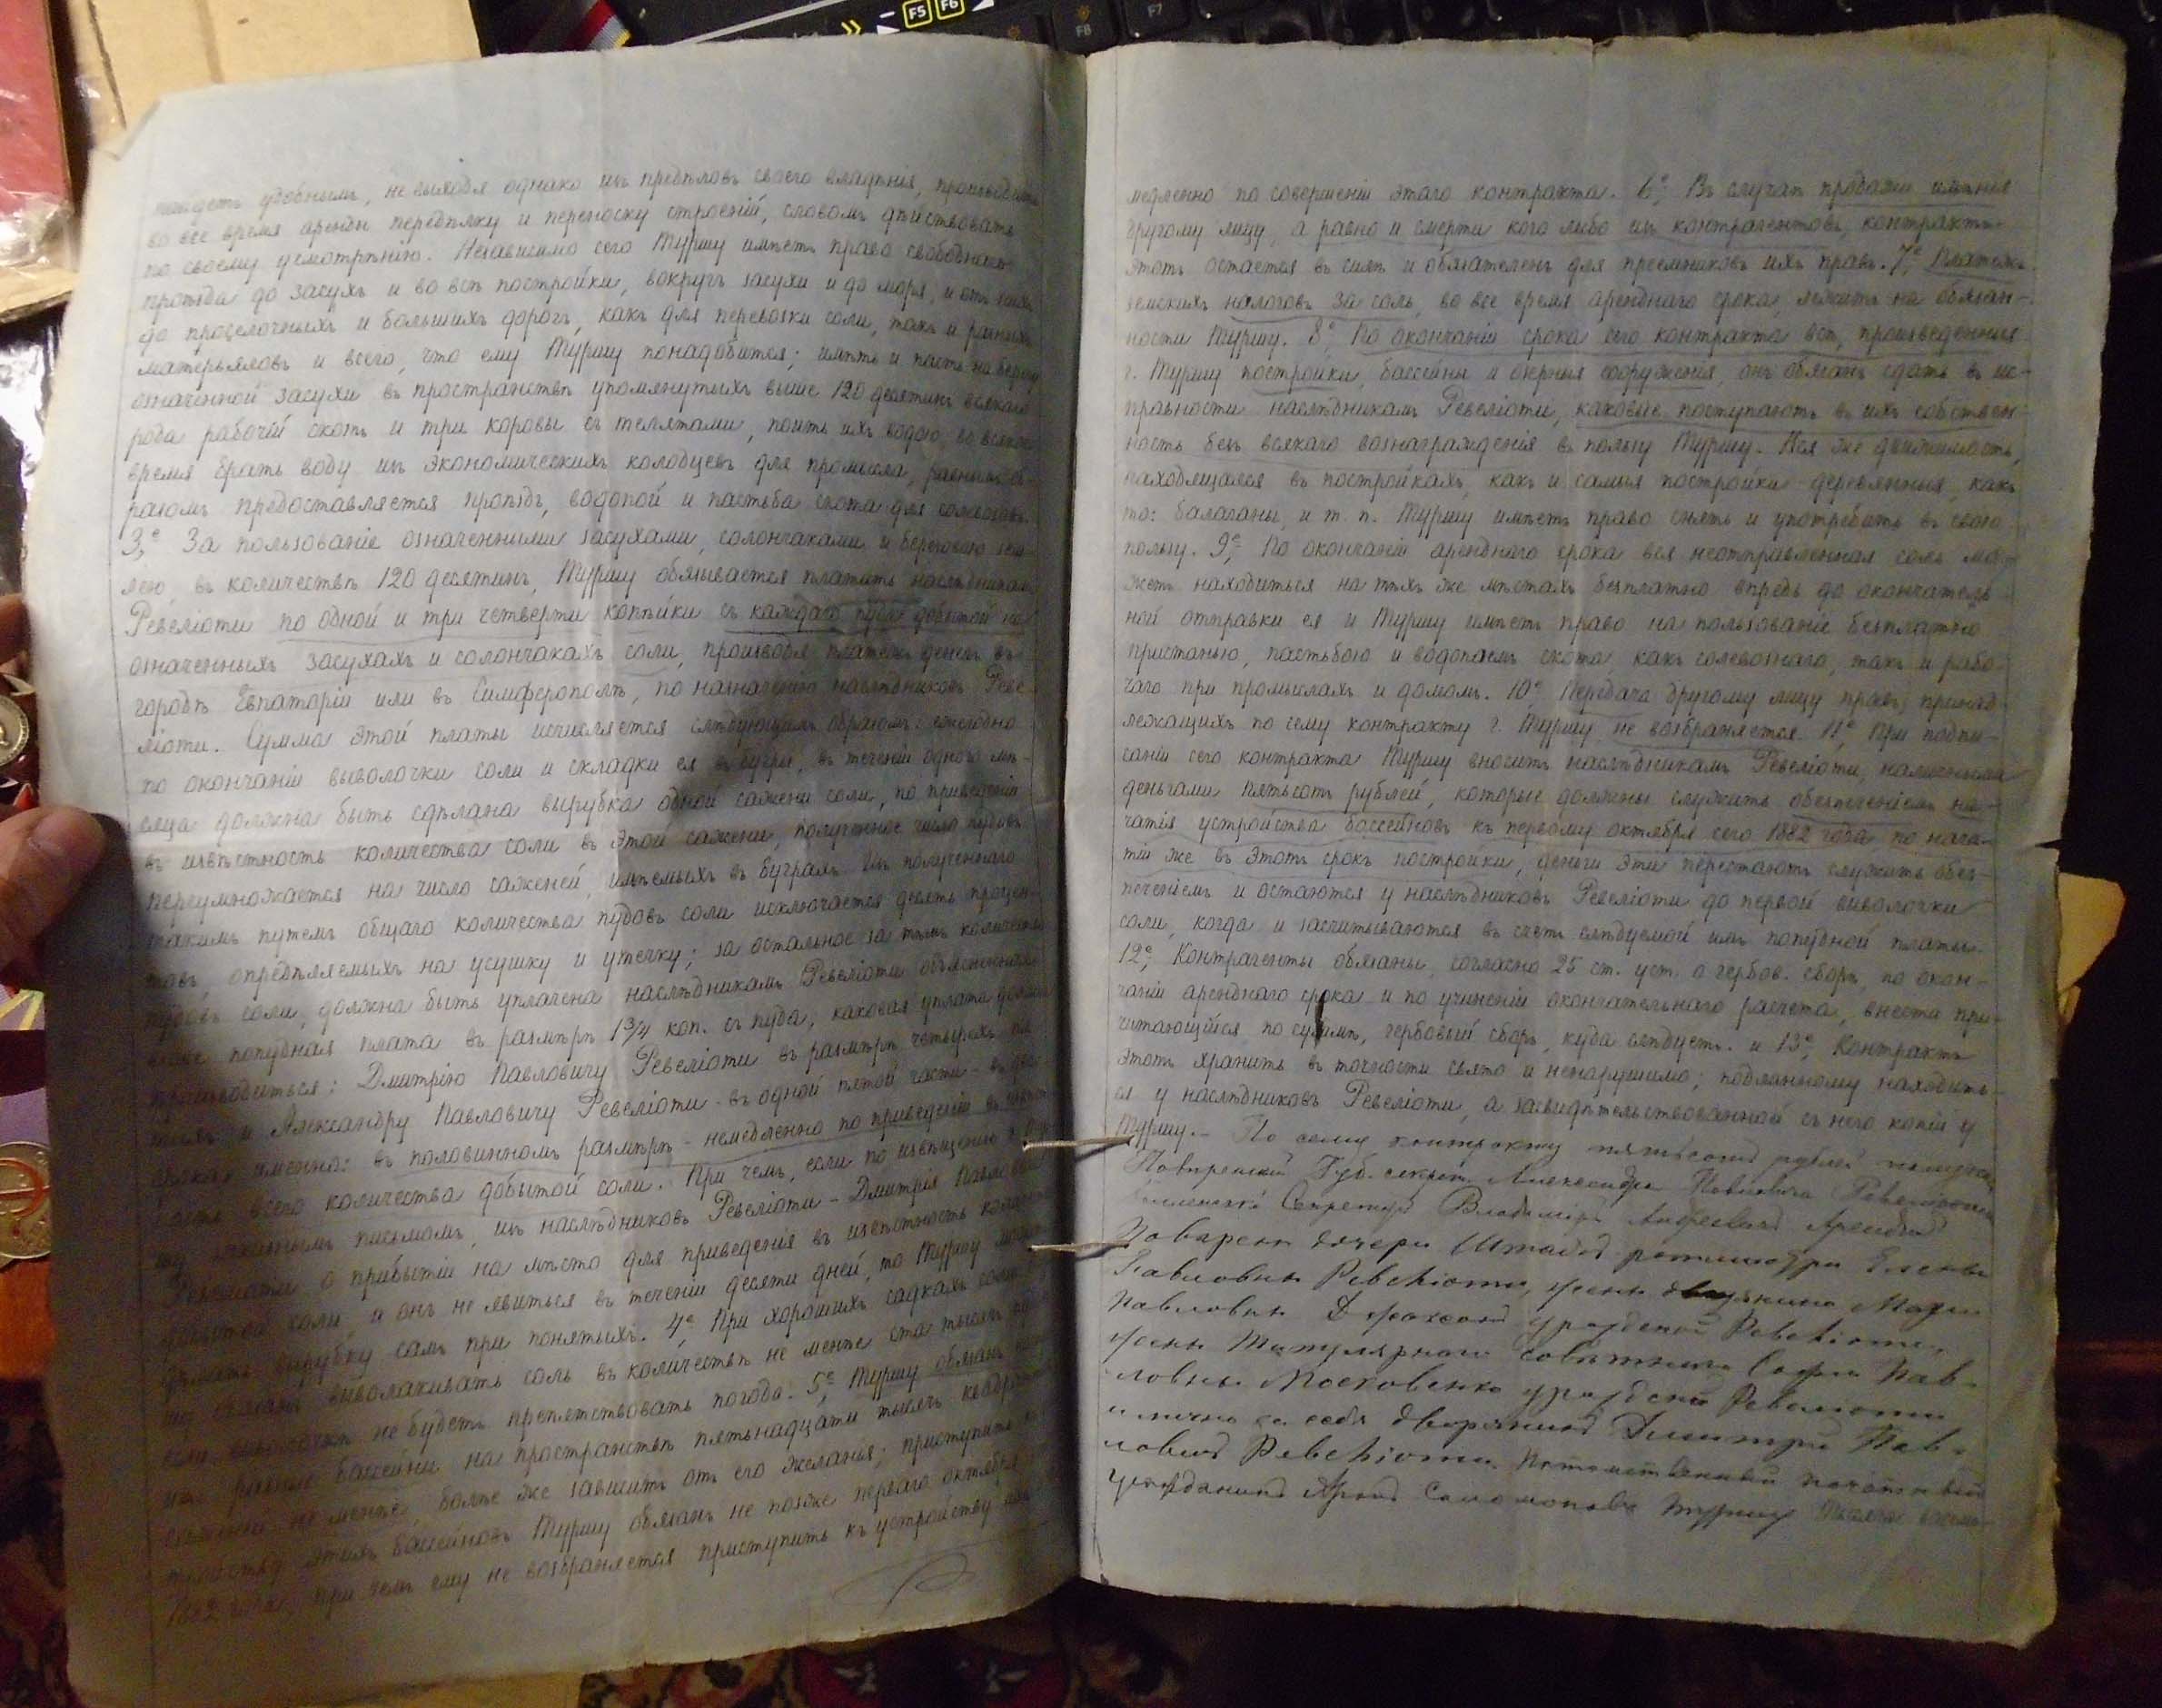 F5
F6
F7
F8
найдетъ удобнымъ, не выходя однако изъ предѣловъ своего владѣнія, производить
во все время аренды передѣлку и переноску строеній, словомъ дѣйствовать
по своему усмотрѣнію. Независимо сего Туршу имѣетъ право свободнаго
проѣзда до засухъ и во всѣ постройки, вокругъ засухи и до моря, и отъ
до проселочныхъ и большихъ дорогъ, какъ для перевозки соли, такъ и разныхъ
матерьяловъ и всего, что ему Туршу понадобится; имѣть и пасть на берегу
означенной засухи въ пространствѣ упомянутыхъ выше 120 десятинъ всякаго
рода рабочій скотъ и три коровы съ телятами, поить ихъ водою, во всякое
время брать воду изъ экономическихъ колодцевъ для промысла, равнымъ об-
разомъ предоставляется проѣздъ, водопой и пастьба скота для солевозовъ.
3е, За пользованіе означенными засухами, солончаками и береговою зем-
лею, въ количествѣ 120 десятинъ, Туршу обязывается платить наслѣдникамъ
Ревеліоти по одной и три четверти копѣйки съ каждаго пуда добытой на
означенныхъ засухахъ и солончакахъ соли, производя платежъ денегъ въ
городѣ Евпаторіи или въ Симферополѣ, по назначенію наслѣдниковъ Реве-
ліоти. Сумма этой платы исчисляется слѣдующимъ образомъ: ежегодно
по окончаніи выволочки соли и складки ея въ бугры, въ теченіи одного мѣ-
сяца должна быть сдѣлана вырубка одной сажени соли, по приведеніи
въ извѣстность количества соли въ этой сажени, полученное число пудовъ
переумножается на число саженей, имѣемыхъ въ буграхъ. Изъ полученнаго
такимъ путемъ общаго количества пудовъ соли исключается десять процен-
товъ, опредѣляемыхъ на усушку и утечку; за остальное за тѣмъ количество
пудовъ соли, должна быть уплачена наслѣдникамъ Ревеліоти объясненная
выше попудная плата въ размѣрѣ 1¾ коп. съ пуда, каковая уплата должна
производиться: Дмитрію Павловичу Ревеліоти въ размѣрѣ четырехъ пя-
тыхъ и Александру Павловичу Ревеліоти - въ одной пятой части - въ два
срока, именно: въ половинномъ размѣрѣ - немедленно по приведеніи въ извѣст-
ность всего количества добытой соли. При чемъ, если по извѣщенію
заказнымъ письмомъ, изъ наслѣдниковъ Ревеліоти - Дмитрія Павловича
Ревеліоти о прибытіи на мѣсто для приведенія въ извѣстность количества
добытой соли, и онъ не явиться въ теченіи десяти дней, то Туршу можетъ
сдѣлать вырубку самъ при понятыхъ. 4е, При хорошихъ садкахъ соли
обязанъ выволакивать соль въ количествѣ не менѣе ста тысячъ
если выволочкѣ не будетъ препятствовать погода. 5е, Туршу обязанъ
бассейны на пространствѣ пятьнадцати тысячъ квадратныхъ
саженей не менѣе, болѣе же зависитъ отъ его желанья; приступить къ
устройству этихъ бассейновъ Туршу обязанъ не позже перваго октября
1882 года, при чемъ ему не возбраняется приступить къ устройству
медленно по совершеніи этаго контракта. 6е, Въ случаѣ продажи имѣнія
другому лицу, а равно и смерти кого либо изъ контрагентовъ, контрактъ
этотъ остается въ силѣ и обязателенъ для преемниковъ ихъ правъ. 7е, Платежъ
земскихъ налоговъ за соль, во все время аренднаго срока, лежитъ на обязан-
ности Туршу. 8е, По окончаніи срока сего контракта всѣ, произведенныя
г. Туршу постройки, бассейны и озерныя сооруженія, онъ обязанъ сдать въ ис-
правности наслѣдникамъ Ревеліоти, каковые поступаютъ въ ихъ собствен-
ность безъ всякаго вознагражденія въ пользу Туршу. Вся же движимость,
находящаяся въ постройкахъ, какъ и самыя постройки деревянныя, какъ
то: балаганы, и т. п. Туршу имѣетъ право снять и употребить въ свою
пользу. 9е, По окончаніи аренднаго срока вся неотправленная соль мо-
жетъ находиться на тѣхъ же мѣстахъ безплатно впредь до окончатель-
ной отправки ея и Туршу имѣетъ право на пользованіе безплатно
пристанью, пастьбою и водопоемъ скота, какъ солевознаго, такъ и рабо-
чаго при промыслахъ и домомъ. 10е, Передача другому лицу правъ, принад-
лежащихъ по сему контракту г. Туршу не возбраняется. 11е, При подпи-
саніи сего контракта Туршу вноситъ наслѣдникамъ Ревеліоти, наличными
деньгами пятьсотъ рублей, которые должны служить обезпеченіемъ на-
чатія устройства бассейновъ къ первому октября сего 1882 года, по нача-
тіи же въ этотъ срокъ постройки, деньги эти перестаютъ служить обез-
печеніемъ и остаются у наслѣдниковъ Ревеліоти до первой выволочки
соли, когда и засчитываются въ счетъ слѣдуемой имъ попудной платы.
12е, Контрагенты обязаны, согласно 25 ст. уст. о гербов. сборѣ, по окон-
чаніи аренднаго срока и по учиненіи окончательнаго расчета, внести при-
читающійся по суммѣ, гербовый сборъ, куда слѣдуетъ. и 13е, Контрактъ
этотъ хранить въ точности свято и ненарушимо; подлинному находить-
ся у наслѣдниковъ Ревеліоти, а засвидѣтельствованной съ него копіи у
Туршу. - По сему контракту пятьсотъ рублей получилъ
Повѣренный Губ. секрет. Александра Павловича Ревеліоти
Секретарь Владиміръ Андреевичъ Арендтъ
Повѣрен. дочери Штабсъ ротмистра Елены
Павловны Ревеліоти, жены дворянина Маріи
Павловны урожденной Ревеліоти,
жены Титулярнаго совѣтника Софіи Пав-
ловны Московенко урожденой Ревелиоти
и лично за себя дворянинъ Дмитрій Пав-
ловичъ Ревеліоти. Потомственный почетный
гражданинъ Туршу Тысяча восемь-